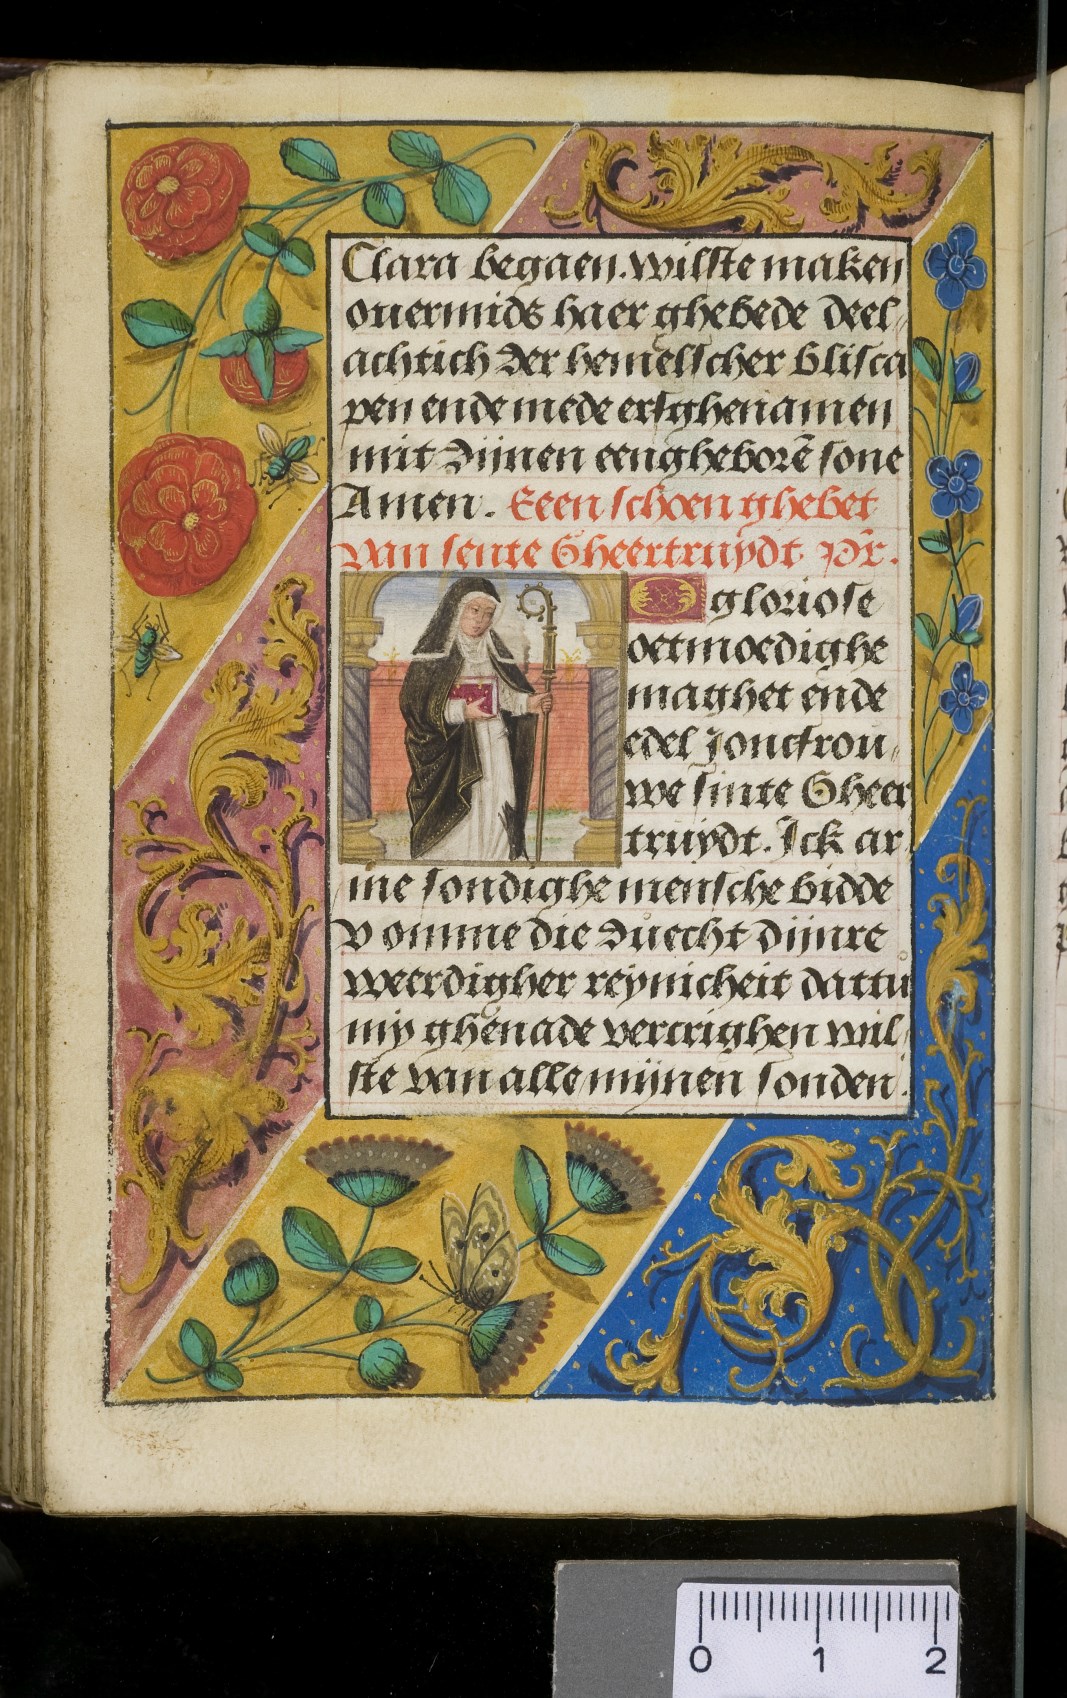 Clara begaen. wilste maken
ouermids haer ghebede deel
achtich der hemelscher blisca
pen ende mede erfghenamen
mit dijnen eengheborē sone
Amen. Eeen schoen ghebet
van sente Gheertruydt. Pr̄.
O gloriose
oetmoedighe
maghet ende
edel joncfrou
we sinte Gheer
truydt. Ick ar
me sondighe mensche bidde
v omme die duecht dijnre
weerdigher reynicheit dattu
my ghenade vercrighen wil
ste van alle mijnen sonden.
0 1 2